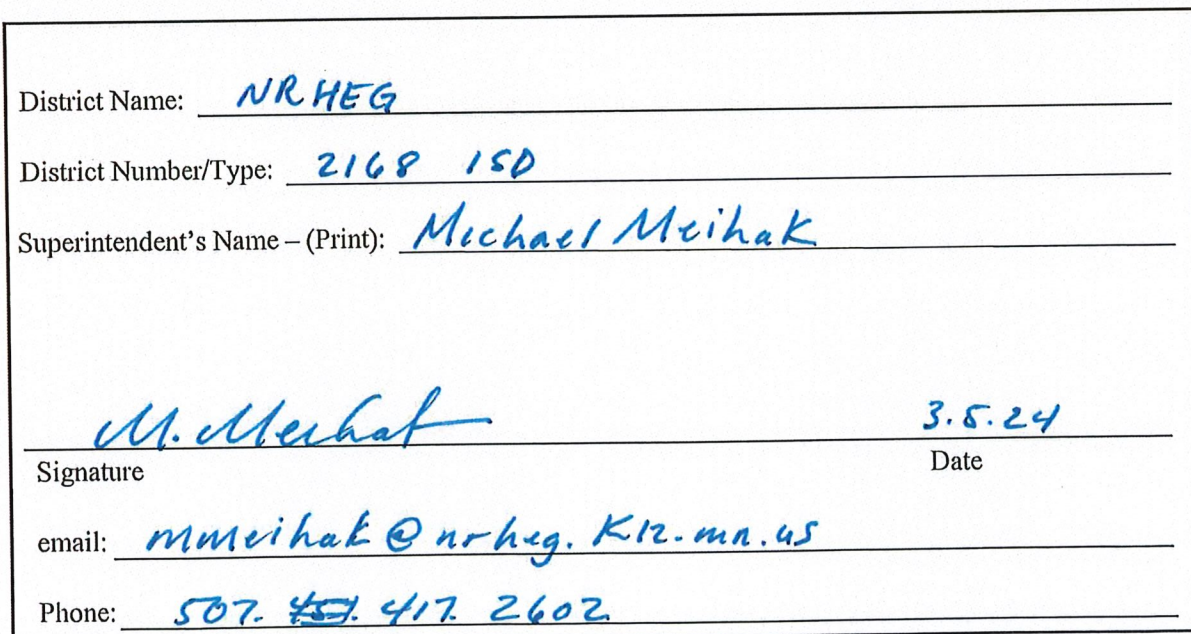 District Name: NRHEG
District Number/Type: 2168 ISD
Superintendent's Name – (Print): Michael Meihak
M. Meihak 3.5.24
Signature Date
email: mmeihak@nrheg.k12.mn.us
Phone: 507. 417. 2602